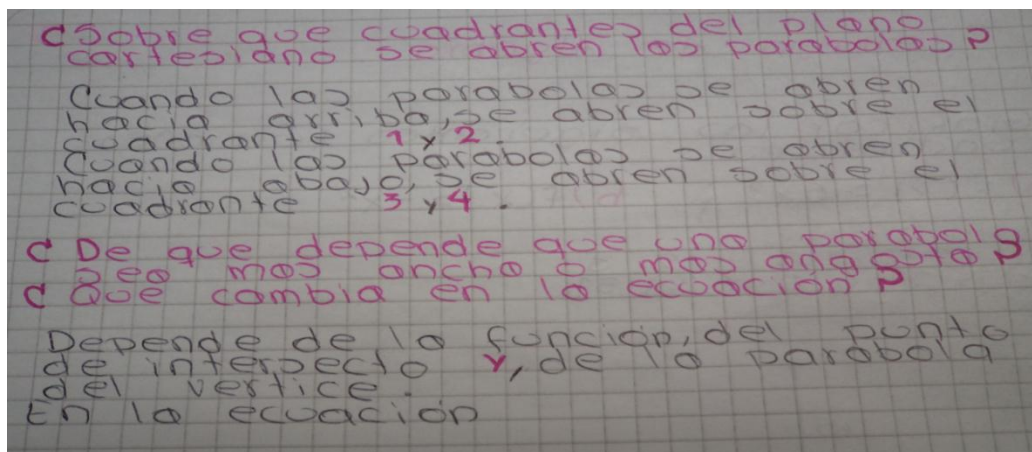 ¿Sobre que cuadrantes del plano
cartesiano se abren las parabolas?
Cuando las parabolas se abren
hacia arriba, se abren sobre el
cuadrante 1 y 2.
Cuando las parabolas se abren
hacia abajo, se abren sobre el
cuadrante 3 y 4.
¿De que depende que una parabola
sea mas ancha o mas angosta?
¿Que cambia en la ecuacion?
Depende de la funcion, del punto
de intersecto y, de la parabola
del vertice.
En la ecuacion